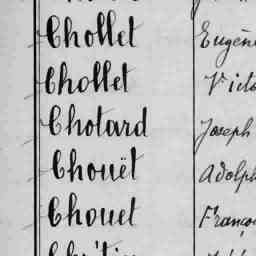 Chollet Eugèn
Chollet Victo
Chotard Joseph
Chouët Adolph
Chouet Franço